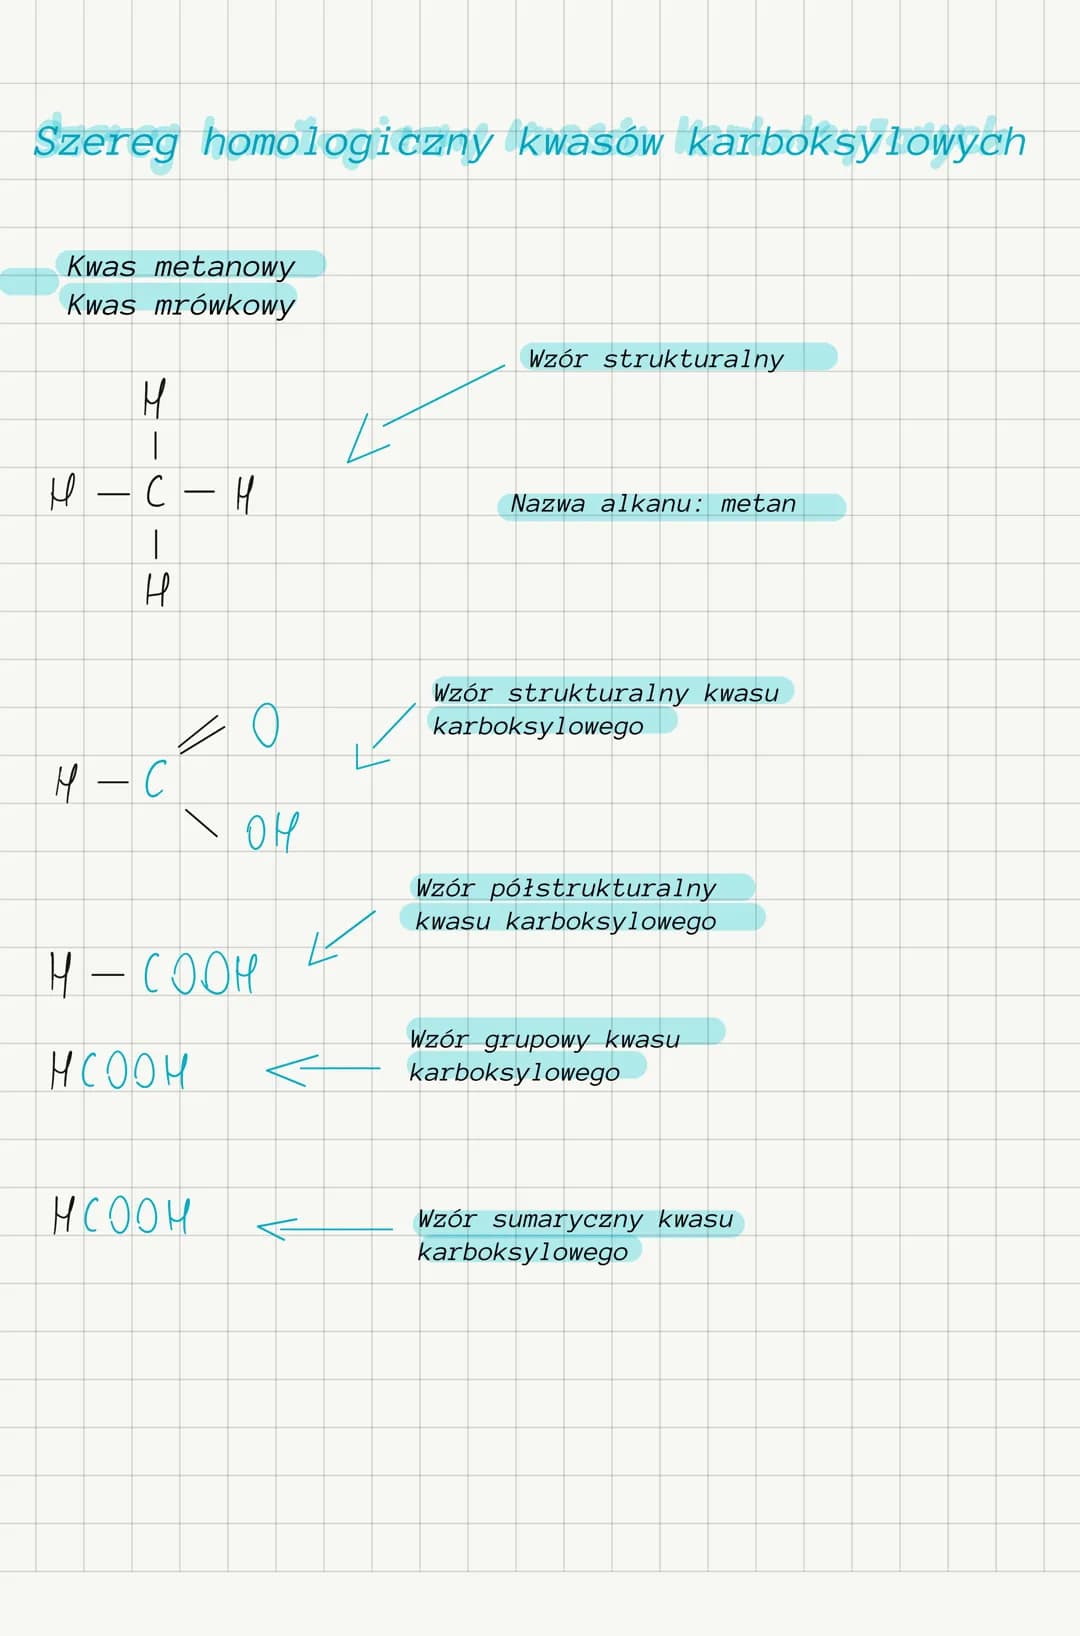 Szereg homologiczny kwasów karboksylowych
Kwas metanowy
Kwas mrówkowy
Wzór strukturalny
H
|
H — C — H
|
H
Nazwa alkanu: metan
Wzór strukturalny kwasu
karboksylowego
O
H — C
OH
Wzór półstrukturalny
kwasu karboksylowego
H — COOH
Wzór grupowy kwasu
karboksylowego
HCOOH
HCOOH
Wzór sumaryczny kwasu
karboksylowego